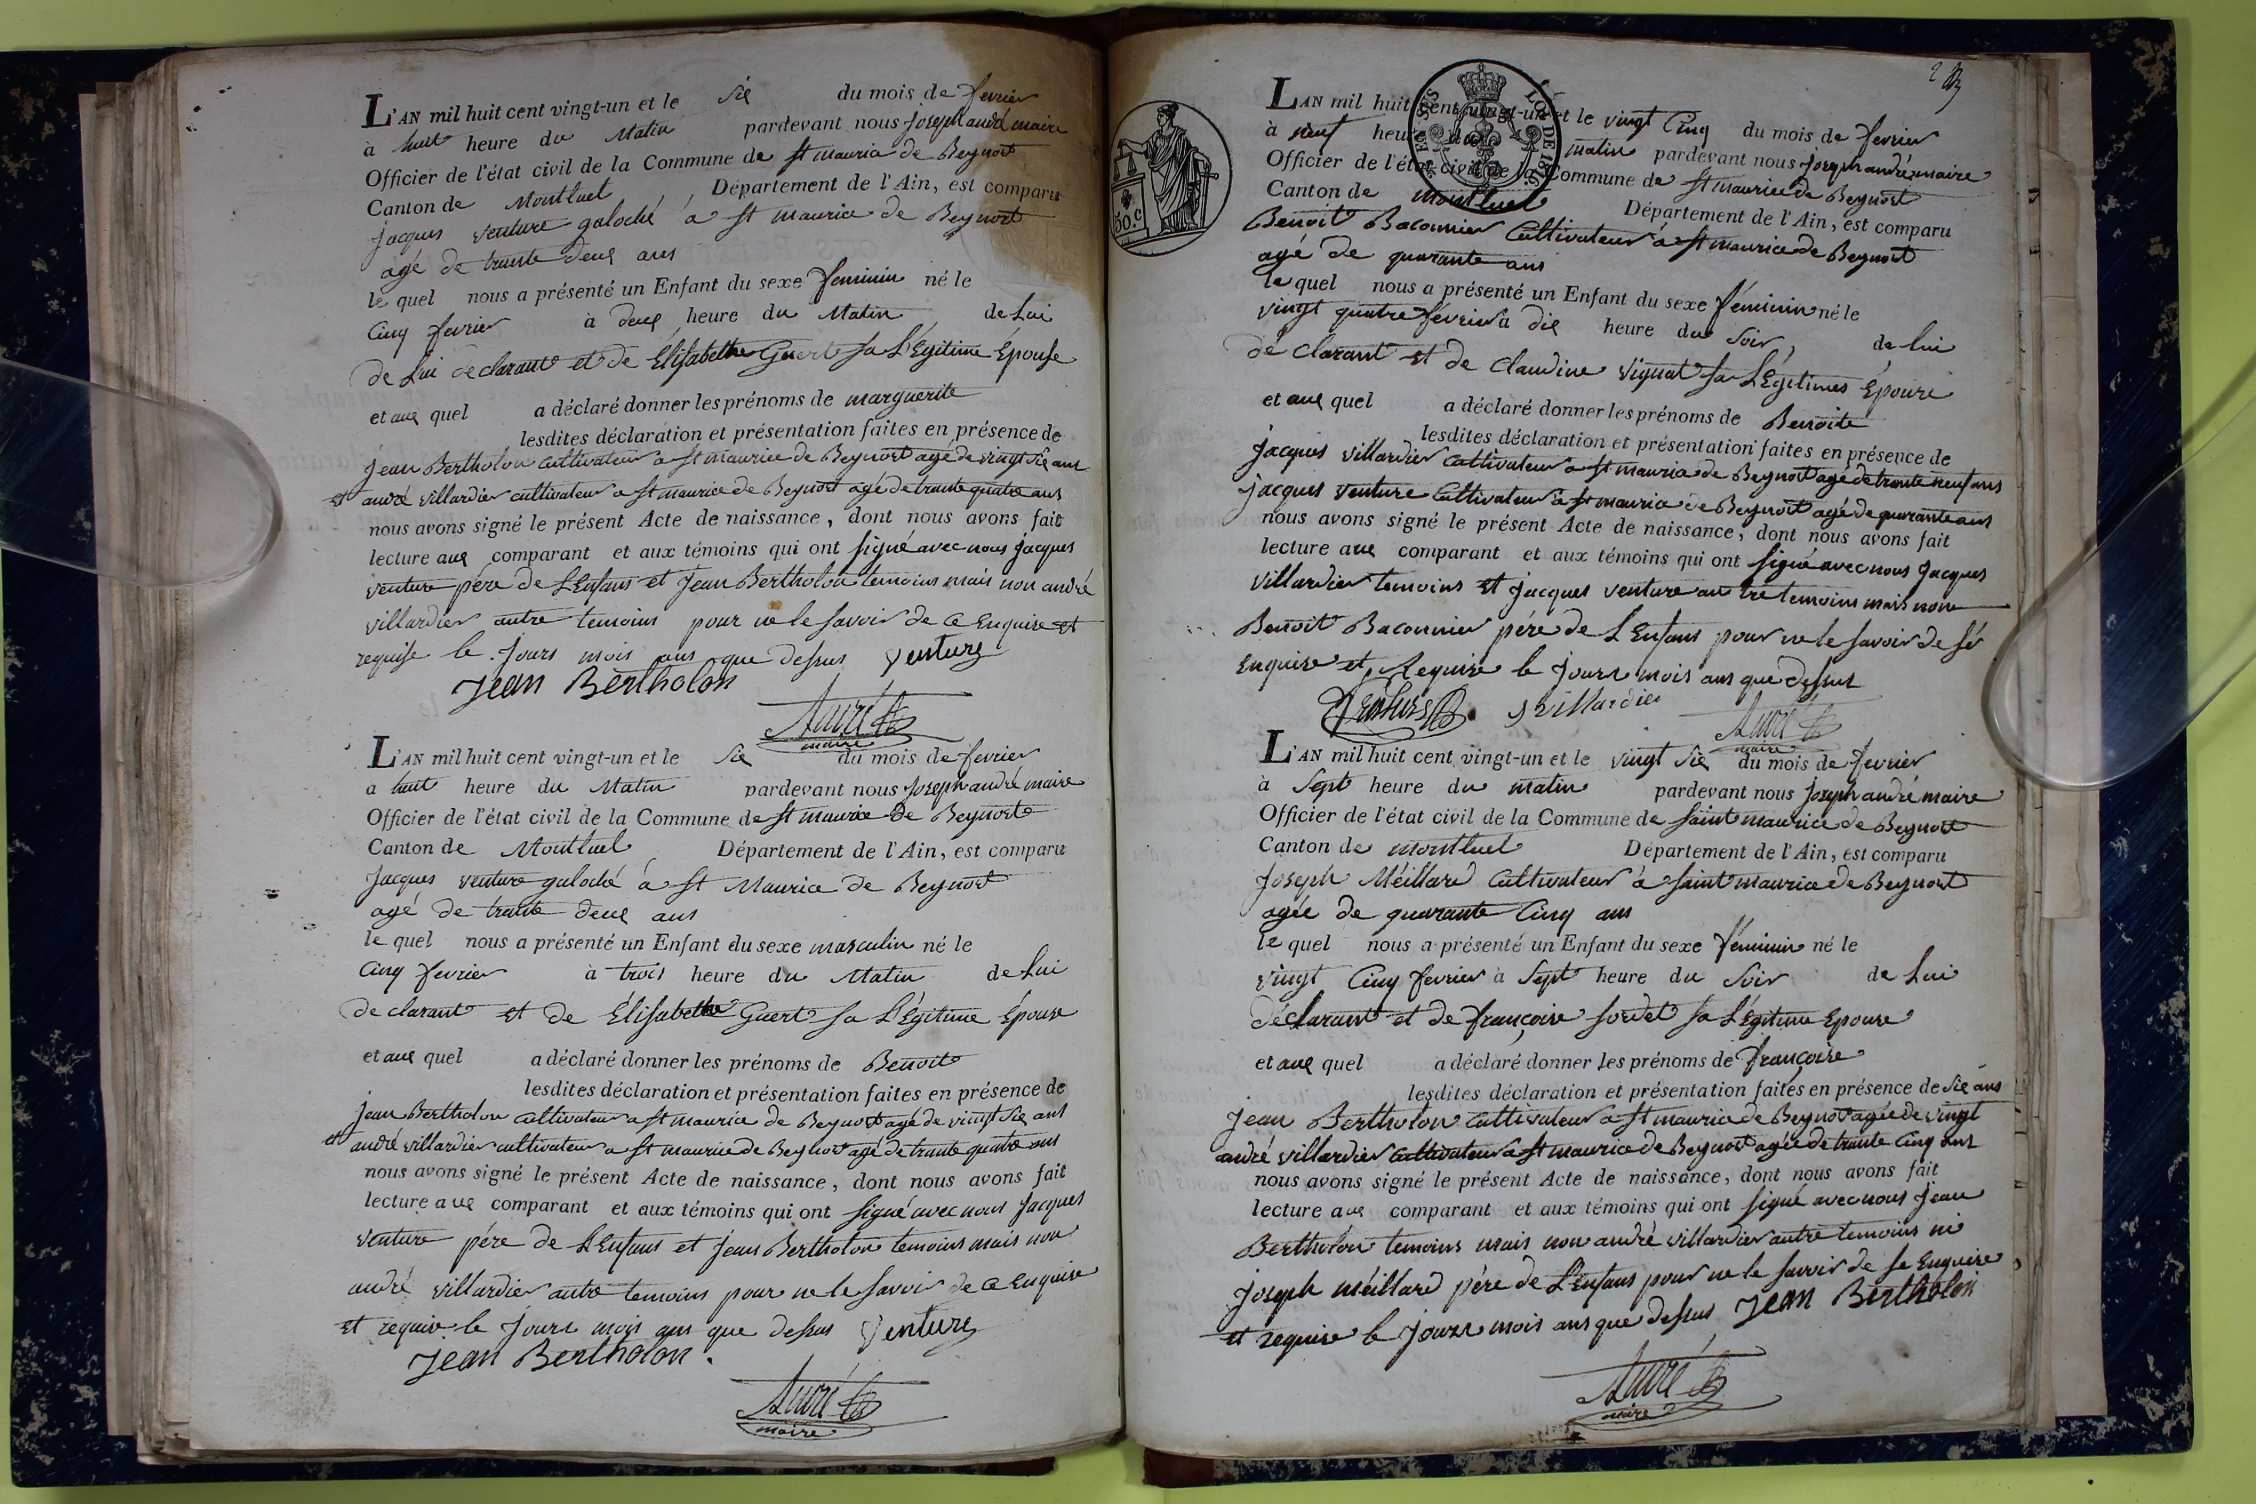 L'AN mil huit cent vingt-un et le Six du mois de fevrier
à huit heure du Matin pardevant nous joseph andré maire
Officier de l'état civil de la Commune de st maurice de Beynost
Canton de Montluel Département de l'Ain, est comparu
jacques venture galoché à st maurice de Beynost
agé de trante deux ans
le quel nous a présenté un Enfant du sexe feminin né le
Cinq fevrier à deux heure du Matin de Lui
de Lui declarant et de Élisabethe Guert sa L'Égitime Épouse
et aux quel a déclaré donner les prénoms de marguerite
lesdites déclaration et présentation faites en présence de
jean Bertholon cultivateur a st maurice de Beynost agé de vingt six ans
et andré villardier cultivateur a st maurice de Beynost agé de trante quatre ans
nous avons signé le présent Acte de naissance, dont nous avons fait
lecture aux comparant et aux témoins qui ont signé avec nous jacques
venture pére de L'Enfans et jean Bertholon temoins mais non andré
villardier autre temoins pour ne le savoir de ce Enquise et
requise le jours mois ans que dessus venture
jean Bertholon
André
maire
L'AN mil huit cent vingt-un et le Six du mois de fevrier
a huit heure du Matin pardevant nous joseph andré maire
Officier de l'état civil de la Commune de st maurice de Beynost
Canton de Montluel Département de l'Ain, est comparu
jacques venture galoché à st Maurice de Beynost
agé de trante deux ans
le quel nous a présenté un Enfant du sexe masculin né le
Cinq fevrier à trois heure du Matin de Lui
declarant et de Élisabethe Guert sa L'Égitime Épouse
et aux quel a déclaré donner les prénoms de Benoit
lesdites déclaration et présentation faites en présence de
jean Bertholon cultivateur a st maurice de Beynost agé de vingt six ans
et andré villardier cultivateur a st maurice de Beynost agé de trante quatre ans
nous avons signé le présent Acte de naissance, dont nous avons fait
lecture aux comparant et aux témoins qui ont signé avec nous jacques
venture pére de L'Enfans et jean Bertholon temoins mais non
andré villardier autre temoins pour ne le savoir de ce enquise
et requise le jours mois ans que dessus venture
jean Bertholon.
André
maire
50.c
LOI DE 1816
L'AN mil huit cent vingt-un et le vingt Cinq du mois de fevrier
à neuf heure du matin pardevant nous joseph andré maire
Officier de l'état civil de la Commune de st maurice de Beynost
Canton de montluel Département de l'Ain, est comparu
Benoit Baconnier Cultivateur à st maurice de Beynost
agé de quarante ans
le quel nous a présenté un Enfant du sexe féminin né le
vingt quatre fevrier à dix heure du Soir, de lui
déclarant et de Claudine vignat sa L'Égitimes Épouse
et aux quel a déclaré donner les prénoms de Benoite
lesdites déclaration et présentation faites en présence de
jacques villardier cultivateur a st maurice de Beynost agé de trante neuf ans
jacques venture Cultivateur a st maurice de Beynost agé de quarante ans
nous avons signé le présent Acte de naissance, dont nous avons fait
lecture aux comparant et aux témoins qui ont signé avec nous jacques
villardier temoins et jacques venture autre temoins mais non
Benoit Baconnier pére de L'Enfans pour ne le savoir de sé
enquise et Requise le jours mois ans que dessus
venture j villardier
André
maire
L'AN mil huit cent vingt-un et le vingt Six du mois de fevrier
à Sept heure du matin pardevant nous joseph andré maire
Officier de l'état civil de la Commune de saint maurice de Beynost
Canton de montluel Département de l'Ain, est comparu
joseph Méillard Cultivateur à saint maurice de Beynost
agée de quarante Cinq ans
le quel nous a présenté un Enfant du sexe féminin né le
vingt Cinq fevrier à Sept heure du Soir de Lui
déclarant et de françoise sordet sa L'Égitime Epouse
et aux quel a déclaré donner les prénoms de françoise
lesdites déclaration et présentation faites en présence de six ans
jean Bertholon Cultivateur a st maurice de Beynost agée de vingt
andré villardier cultivateur a st maurice de Beynost agée de trante Cinq ans
nous avons signé le présent Acte de naissance, dont nous avons fait
lecture aux comparant et aux témoins qui ont signé avec nous jean
Bertholon temoins mais non andré villardier autre temoins ni
joseph méillard pére de L'Enfans pour ne le savoir de se Enquise
et requise le jours mois ans que dessus jean Bertholon
André
maire